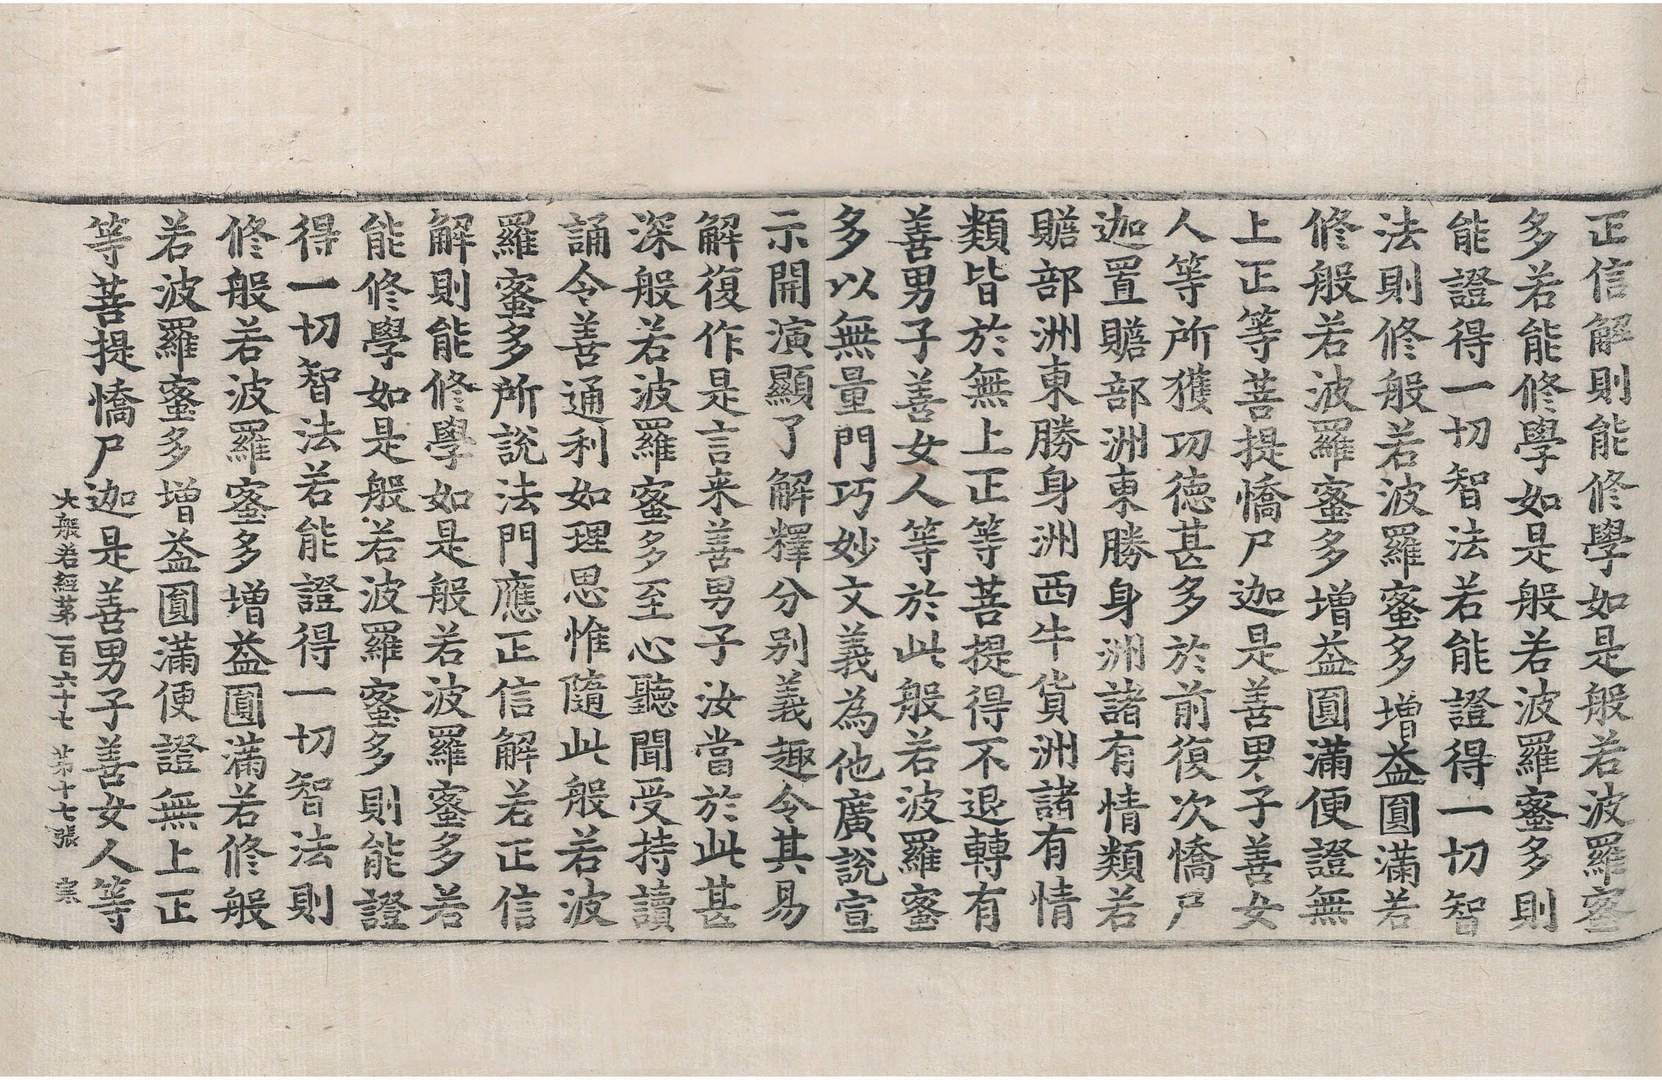 正信解則能修學如是般若波羅蜜
多若能修學如是般若波羅蜜多則
能證得一切智法若能證得一切智
法則修般若波羅蜜多增益圓滿若
修般若波羅蜜多增益圓滿便證無
上正等菩提憍尸迦是善男子善女
人等所獲功德甚多於前復次憍尸
迦置贍部洲東勝身洲諸有情類若
贍部洲東勝身洲西牛貨洲諸有情
類皆於無上正等菩提得不退轉有
善男子善女人等於此般若波羅蜜
多以無量門巧妙文義為他廣說宣
示開演顯了解釋分別義趣令其易
解復作是言来善男子汝當於此甚
深般若波羅蜜多至心聽聞受持讀
誦令善通利如理思惟隨此般若波
羅蜜多所說法門應正信解若正信
解則能修學如是般若波羅蜜多若
能修學如是般若波羅蜜多則能證
得一切智法若能證得一切智法則
修般若波羅蜜多增益圓滿若修般
若波羅蜜多增益圓滿便證無上正
等菩提憍尸迦是善男子善女人等
大般若經第一百六十七 第十七張